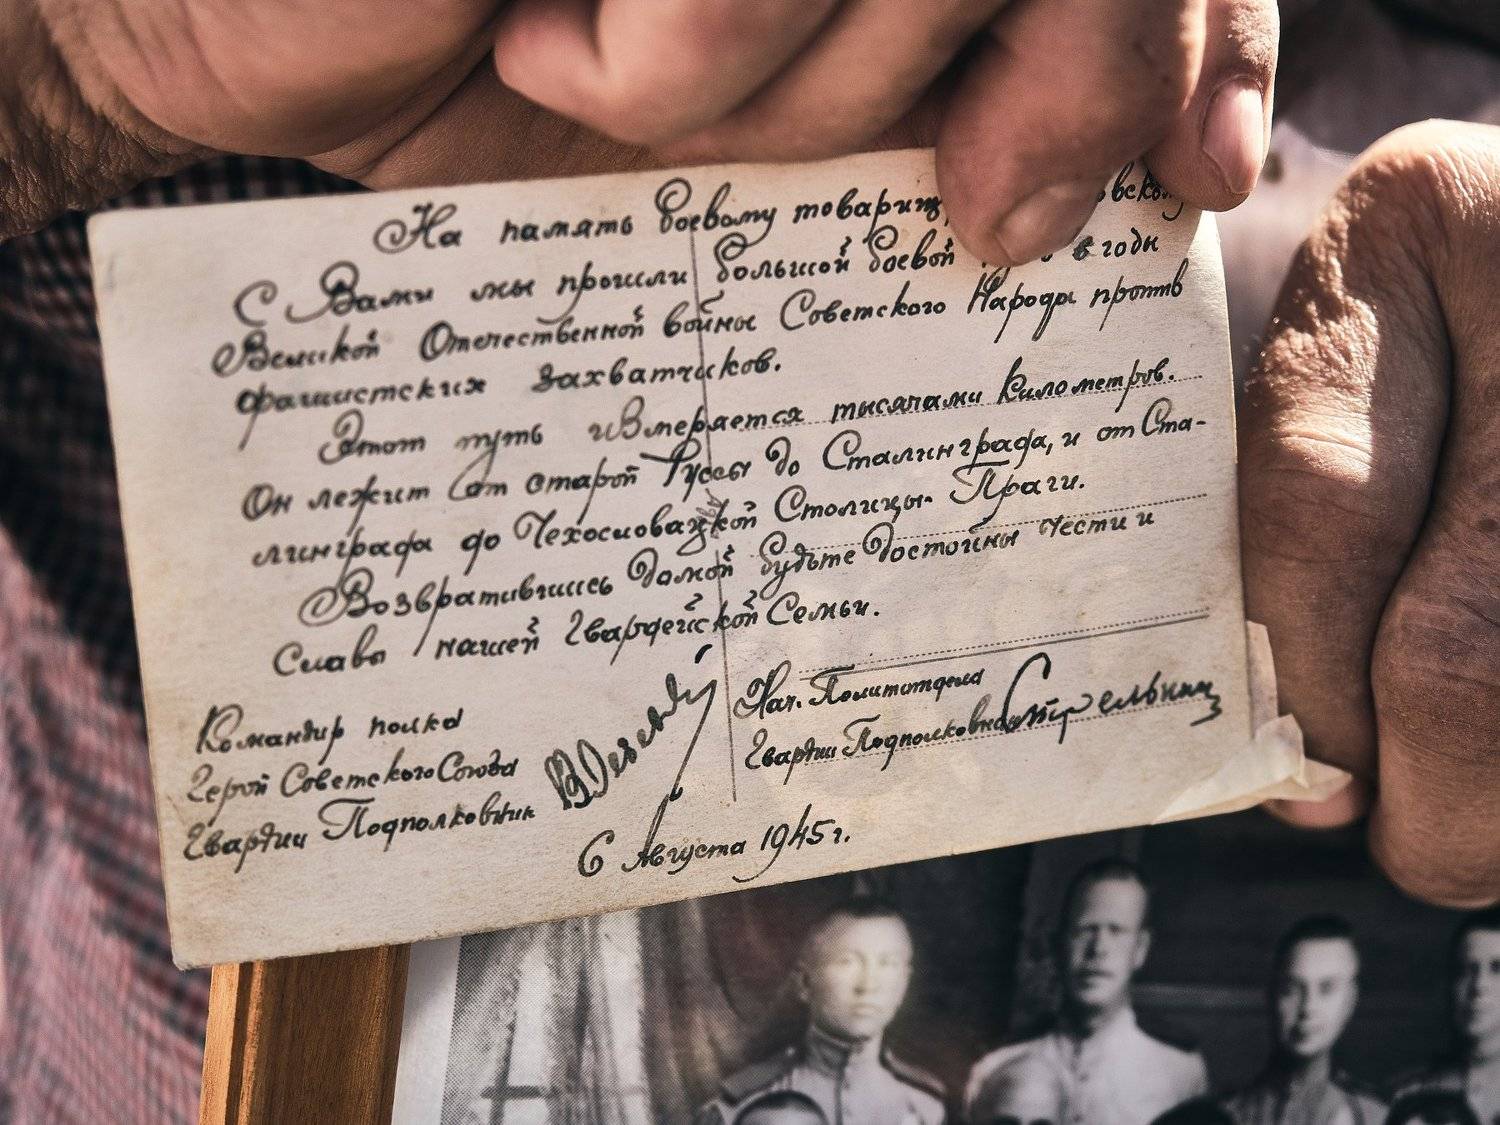 На память боевому товарищ
С Вами мы прошли большой боевой в годы
Великой Отечественной войны Советского Народа против
фашистских захватчиков.
Этот путь измеряется тысячами километров.
Он лежит от старой Руссы до Сталинграда, и от Ста-
линграда до Чехословацкой Столицы- Праги.
Возвратившись домой будьте достойны чести и
Славы нашей Гвардейской Семьи.
Командир полка
Герой Советского Союза
Гвардии Подполковник
Нач. Политотдела
Гвардии Подполковник
6 Августа 1945 г.